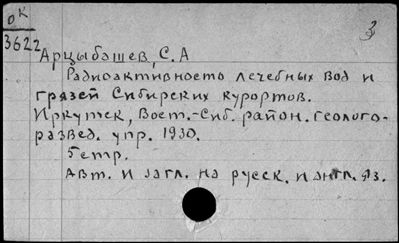 ОК
3622
3
Арцыбашев, С. А
Радиоактивность лечебных вод и
грязей Сибирских курортов.
Иркутск, Вост.-Сиб. район. геолого-
развед. упр. 1930.
5 стр.
Авт. и загл. на русск. и англ. яз.